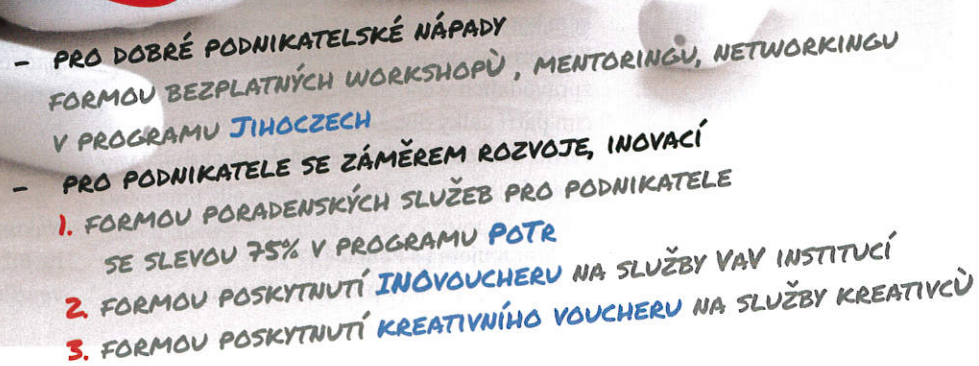 - PRO DOBRÉ PODNIKATELSKÉ NÁPADY
FORMOU BEZPLATNÝCH WORKSHOPÙ, MENTORINGU, NETWORKINGU
V PROGRAMU JIHOCZECH
- PRO PODNIKATELE SE ZÁMĚREM ROZVOJE, INOVACÍ
1. FORMOU PORADENSKÝCH SLUŽEB PRO PODNIKATELE
SE SLEVOU 75% V PROGRAMU POTR
2. FORMOU POSKYTNUTÍ INOVOUCHERU NA SLUŽBY VAV INSTITUCÍ
3. FORMOU POSKYTNUTÍ KREATIVNÍHO VOUCHERU NA SLUŽBY KREATIVCÙ